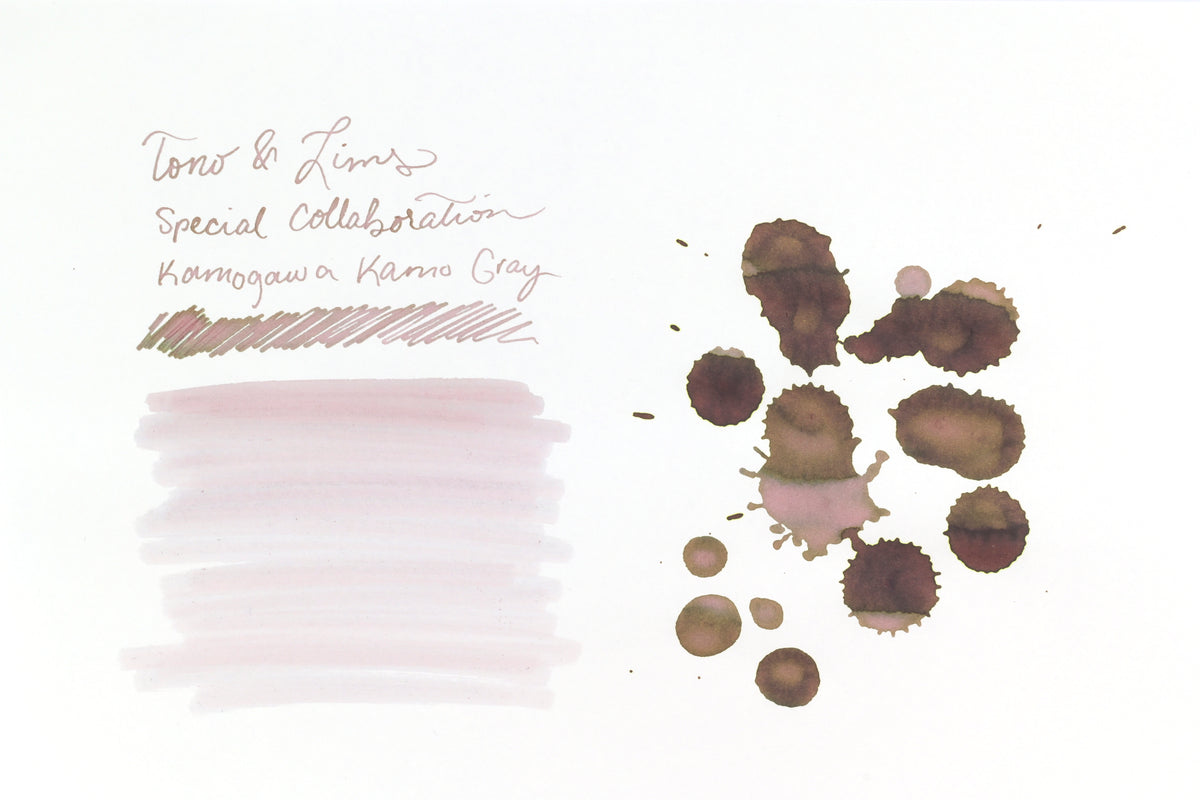 Tono & Lims
Special Collaboration
Kamogawa Kamo Gray